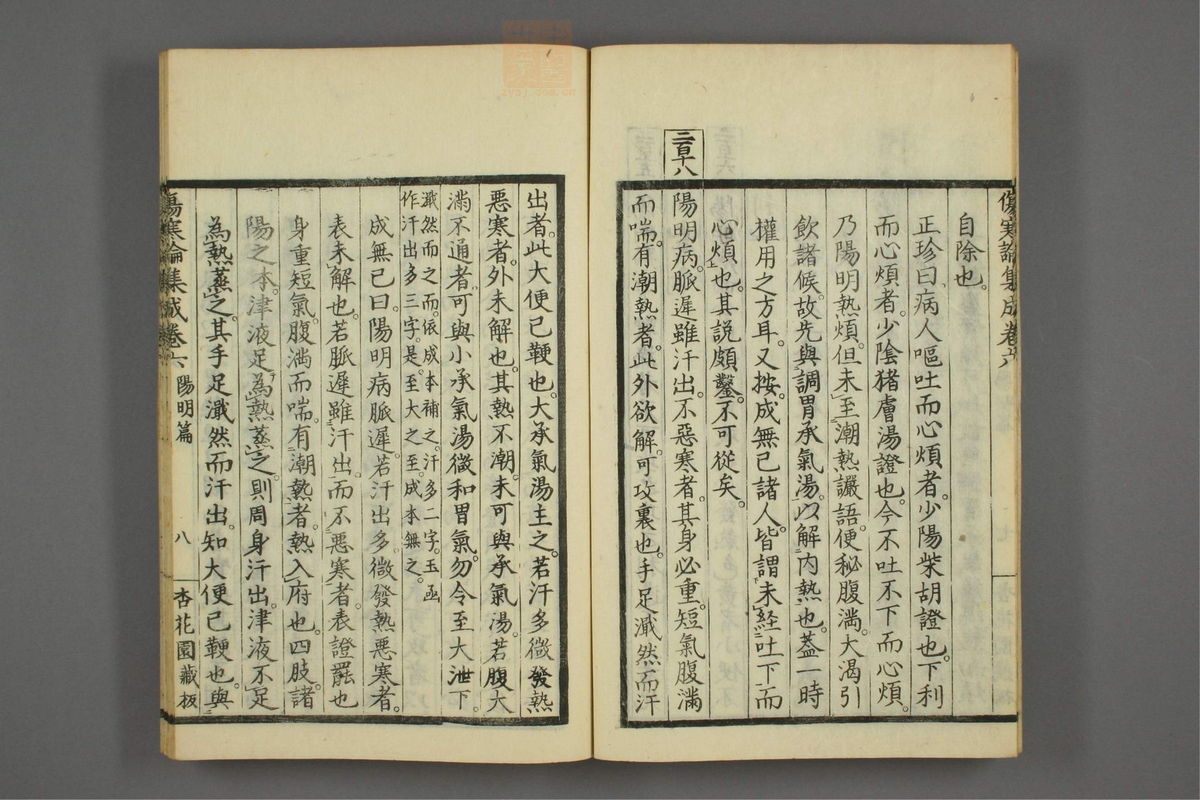 傷寒論集成卷六
自除也。
正珍曰病人嘔吐而心煩者。少陽柴胡證也。下利
而心煩者。少陰猪膚湯證也。今不吐不下而心煩。
乃陽明熱煩。但未至潮熱讝語。便秘腹滿。大渴引
飲諸候。故先與調胃承氣湯。以解內熱也。蓋一時
權用之方耳。又按。成無已諸人。皆謂未經吐下而
心煩也。其說頗鑿。不可從矣。
二百十八
陽明病。脈遲雖汗出。不惡寒者。其身必重。短氣腹滿
而喘。有潮熱者。此外欲解。可攻裏也。手足濈然而汗
出者。此大便已鞕也。大承氣湯主之。若汗多微發熱
惡寒者。外未解也。其熱不潮。未可與承氣湯。若腹大
滿不通者。可與小承氣湯。微和胃氣。勿令至大泄下。
濈然而之而。依成本補之。汗多二字。玉函
作汗出多三字。是。至大之至。成本無之。
成無已曰。陽明病脈遲。若汗出多。微發熱惡寒者。
表未解也。若脈遲雖汗出。而不惡寒者。表證罷也
身重短氣。腹滿而喘。有潮熱者。熱入府也。四肢諸
陽之本。津液足。為熱蒸之。則周身汗出。津液不足
為熱蒸之。其手足濈然而汗出。知大便已鞕也。與
傷寒論集成卷六 陽明篇 八 杏花園藏板